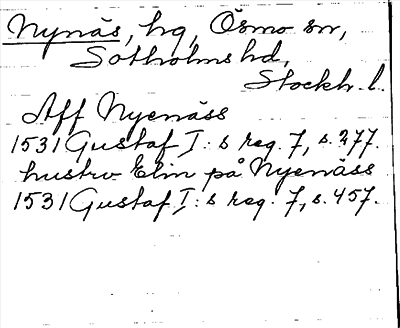 Nynäs, hg, Ösmo sn,
Sotholms hd,
Stockh. l.
Aff Nyenäss
1531 Gustaf I: s reg. 7, s. 277.
hustro Elin på Nyenäss
1531 Gustaf I: s reg. 7, s. 457.